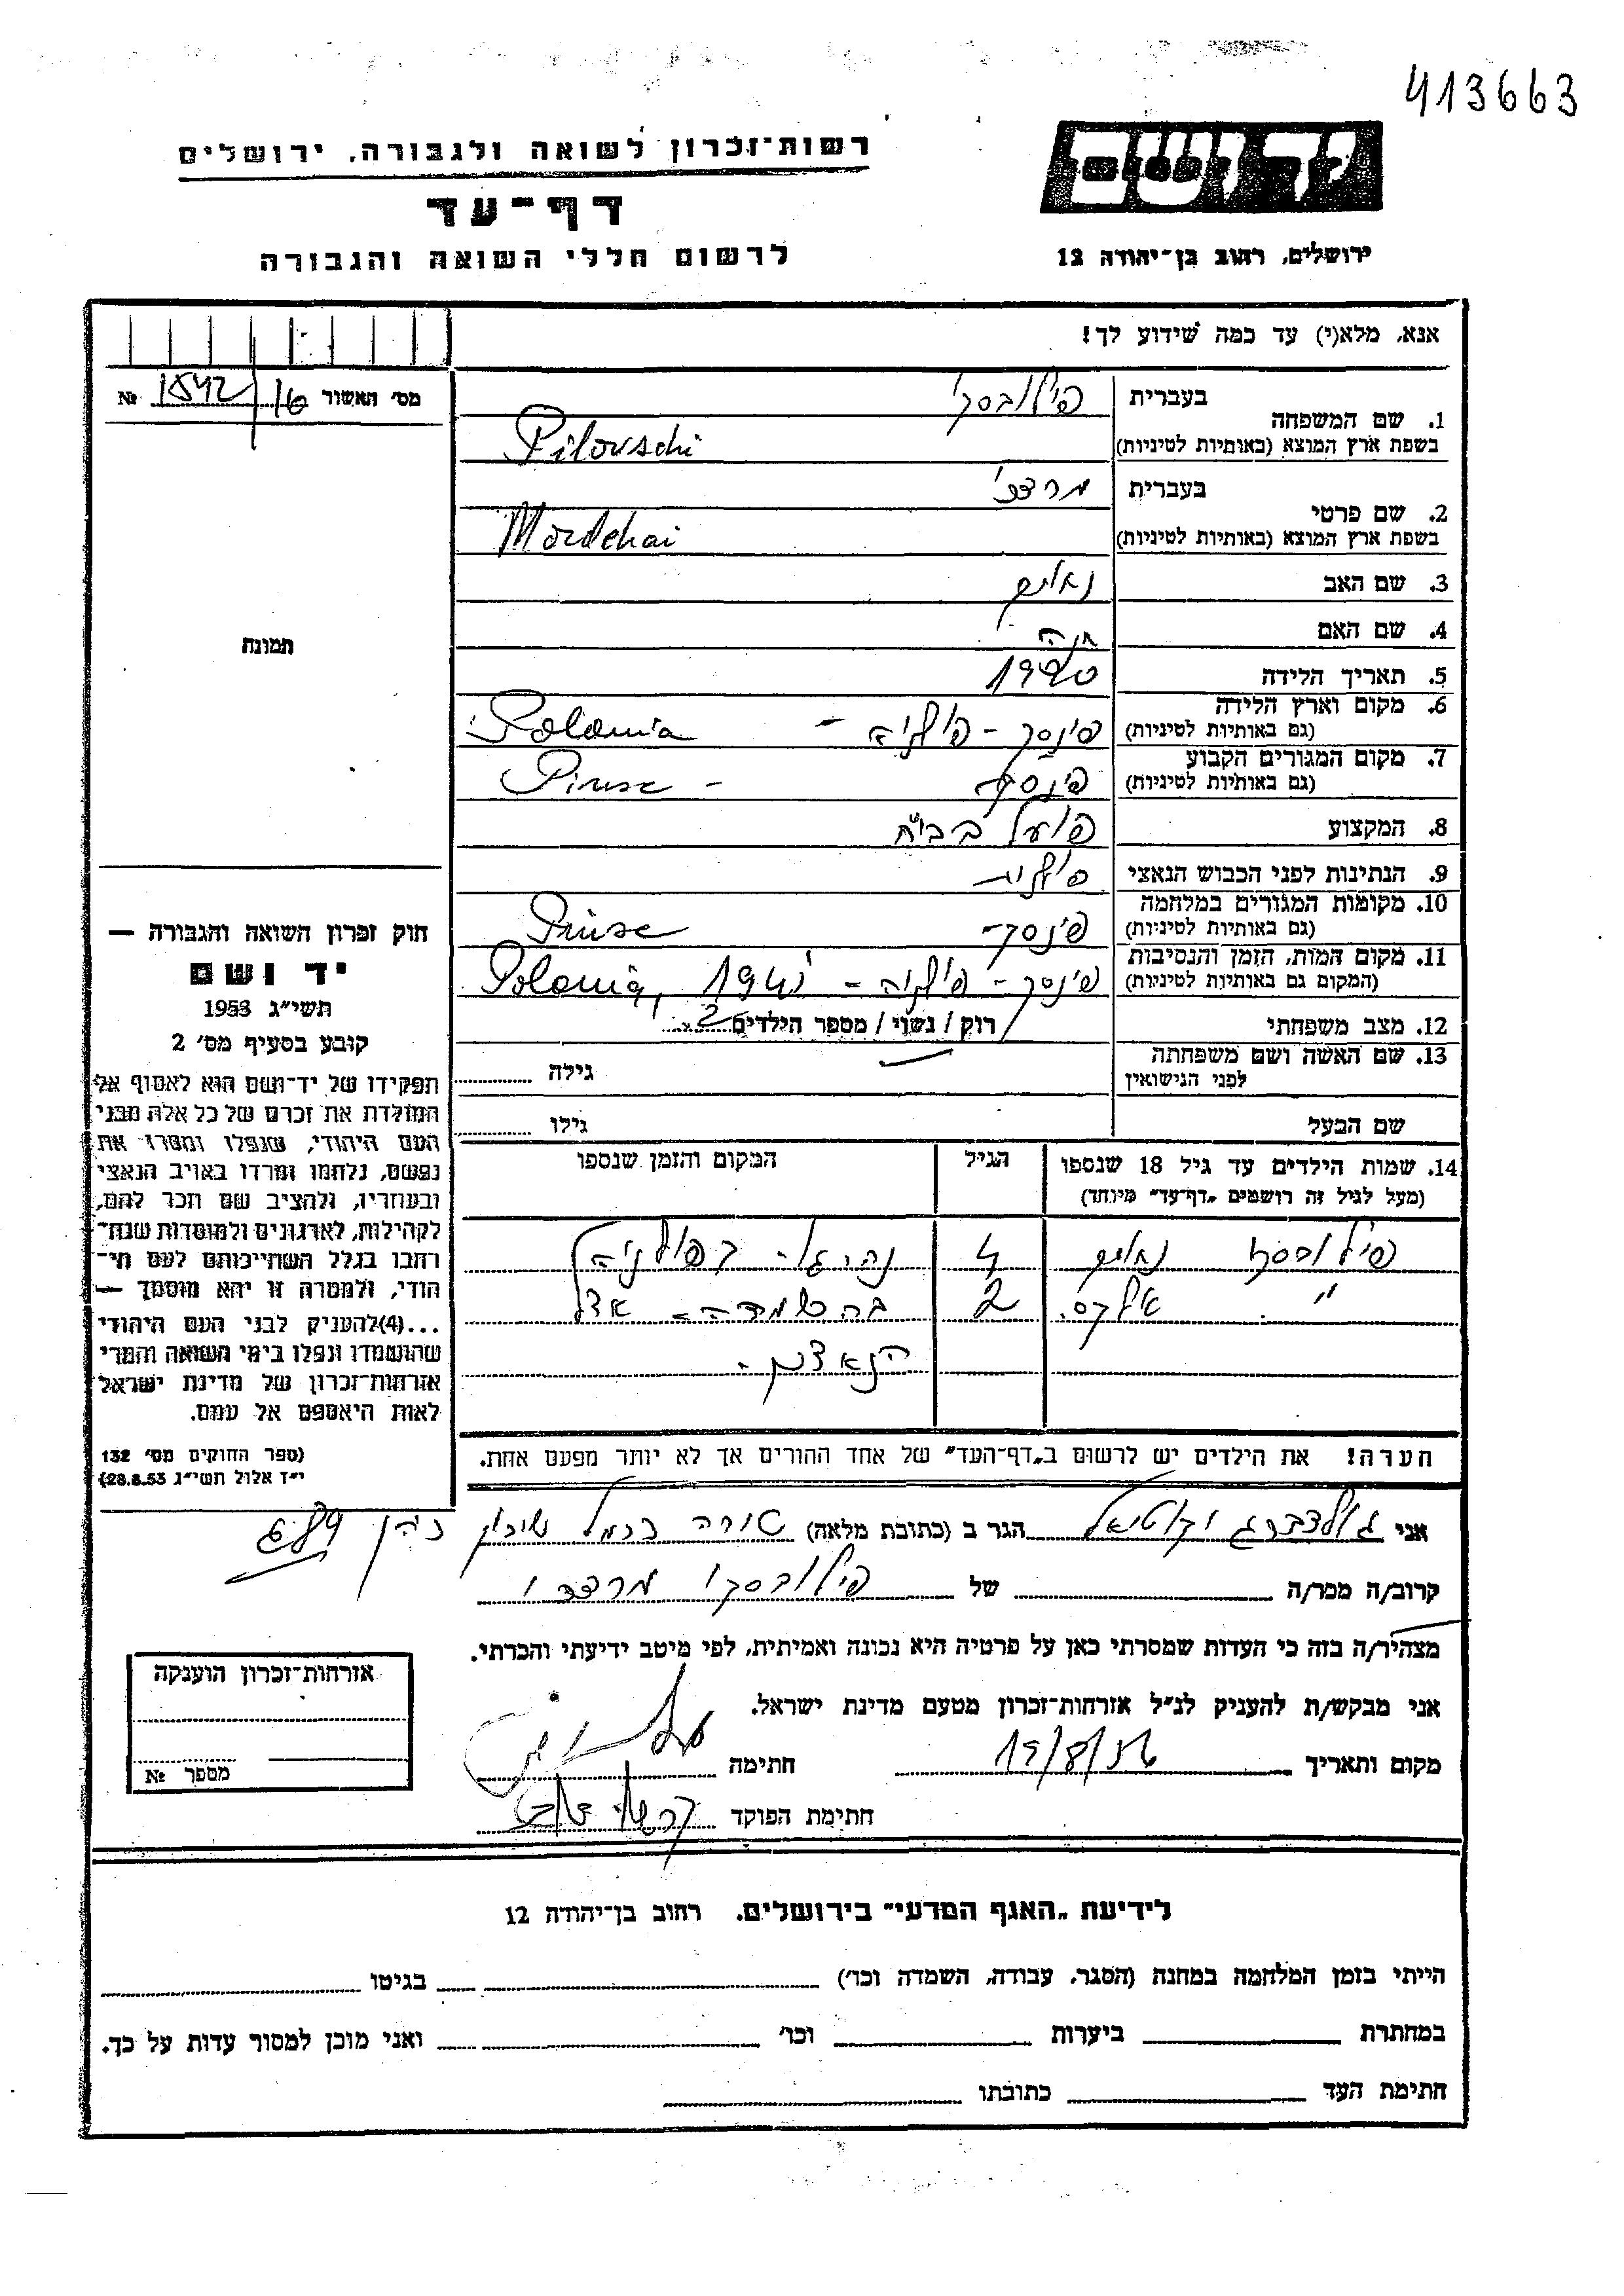 413663
רשות־זכרון לשואה ולגבורה, ירושלים
יד ושם
דף־עד
לרשום חללי השואה והגבורה
ירושלים, רחוב בן־יהודה 12
אנא, מלא(י) עד כמה שידוע לך!
מס' האשור 16/1542 №
1. שם המשפחה
בעברית פילובסקי
בשפת ארץ המוצא (באותיות לטיניות) Pilovschi
2. שם פרטי
בעברית מרדכי
בשפת ארץ המוצא (באותיות לטיניות) Mordehai
3. שם האב
4. שם האם חנה
5. תאריך הלידה
6. מקום וארץ הלידה
(גם באותיות לטיניות) פינסק - פולניה - Polonia
7. מקום המגורים הקבוע
(גם באותיות לטיניות) פינסק - Pinsc
8. המקצוע פועל בבי"ח
9. הנתינות לפני הכבוש הנאצי פולנית
10. מקומות המגורים במלחמה
(גם באותיות לטיניות) פינסק - Pinsc
11. מקום המות, הזמן והנסיבות
(המקום גם באותיות לטיניות) פינסק - פולניה - 1941 Polonia,
12. מצב משפחתי רוק / נשוי / מספר הילדים 2
13. שם האשה ושם משפחתה
לפני הנישואין
גילה
שם הבעל גילו
14. שמות הילדים עד גיל 18 שנספו הגיל המקום והזמן שנספו
(מעל לגיל זה רושמים "דף־עד" מיוחד)
פילובסקי 4 בפולניה
" 2 בהשמדה אצל
הנאצים -
הערה! את הילדים יש לרשום ב"דף־העד" של אחד ההורים אך לא יותר מפעם אחת.
תמונה
חוק זכרון השואה והגבורה —
יד ושם
תשי"ג 1953
קובע בסעיף מס' 2
תפקידו של יד־ושם הוא לאסוף אל
המולדת את זכרם של כל אלה מבני
העם היהודי, שנפלו ומסרו את
נפשם, נלחמו ומרדו באויב הנאצי
ובעוזריו, ולהציב שם וזכר להם,
לקהילות, לארגונים ולמוסדות שנח־
רבו בגלל השתייכותם לעם הי־
הודי, ולמטרה זו יהא מוסמך —
...(4) להעניק לבני העם היהודי
שהושמדו ונפלו בימי השואה והמרי
אזרחות־זכרון של מדינת ישראל
לאות היאספם אל עמם.
(ספר החוקים מס' 132
י"ז אלול תשי"ג 28.8.53)
אני גולדברג הגר ב (כתובת מלאה) טירה כרמל שיכון
קרוב/ה מכר/ה של פילובסקי מרדכי
מצהיר/ה בזה כי העדות שמסרתי כאן על פרטיה היא נכונה ואמיתית, לפי מיטב ידיעתי והכרתי.
אני מבקש/ת להעניק לנ"ל אזרחות־זכרון מטעם מדינת ישראל.
מקום ותאריך 19/8/56 חתימה
חתימת הפוקד
אזרחות־זכרון הוענקה
מספר №
לידיעת "האגף המדעי" בירושלים, רחוב בן־יהודה 12
הייתי בזמן המלחמה במחנה (הסגר, עבודה, השמדה וכו') בגיטו
במחתרת ביערות וכו' ואני מוכן למסור עדות על כך.
חתימת העד כתובתו